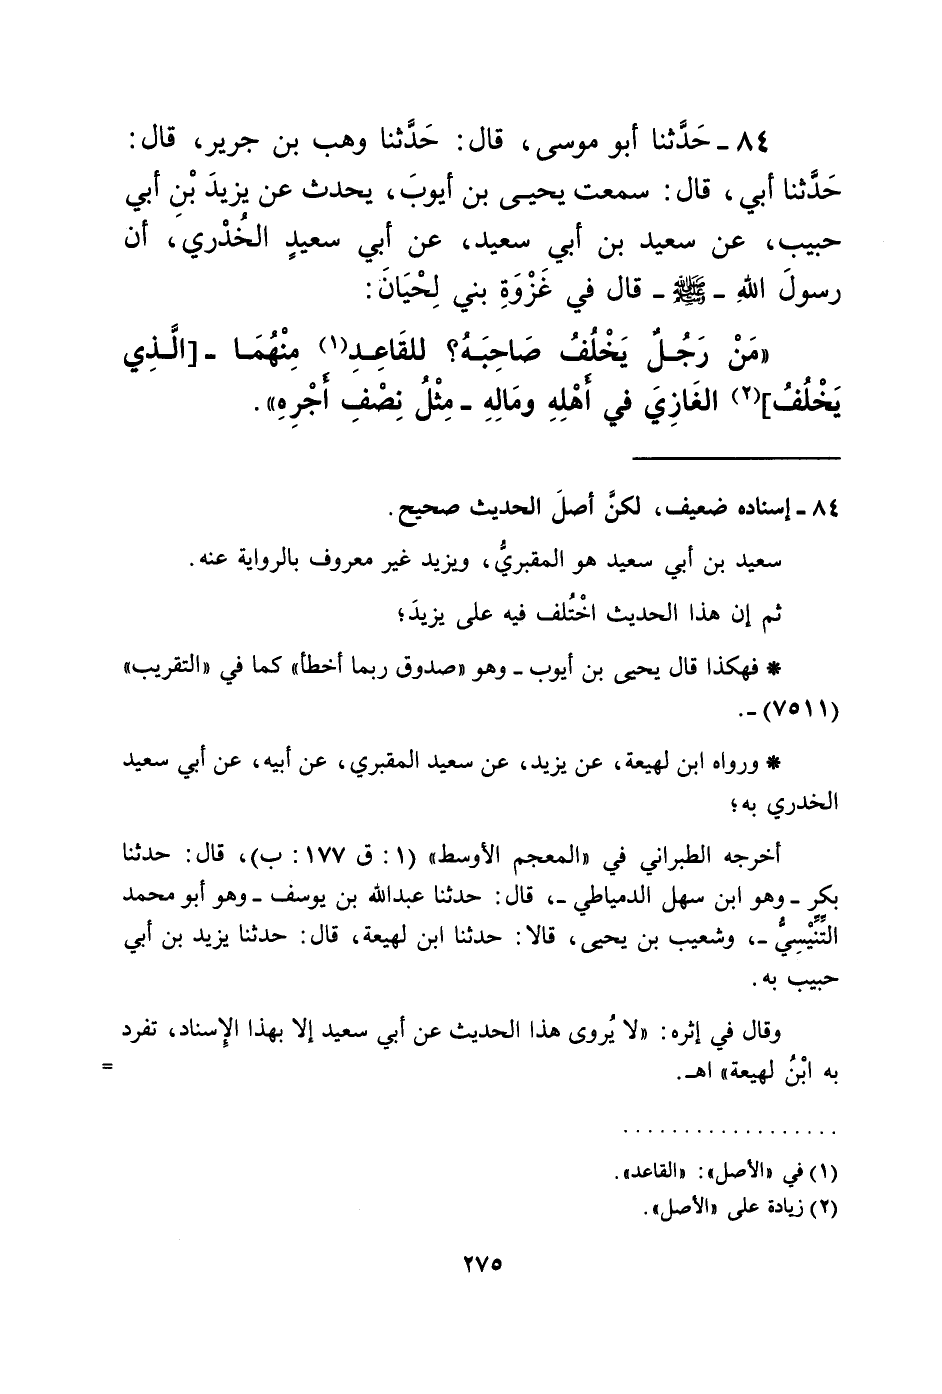 ٨٤ ـ حَدَّثنا أبو موسى، قال: حَدَّثنا وهب بن جرير، قال:
حَدَّثنا أبي، قال: سمعت يحيـى بن أيوبَ، يحدث عن يزيدَ بْنِ أبي
حبيب، عن سعيد بن أبي سعيد، عن أبي سعيدٍ الخُدْرِي، أن
رسولَ اللهِ ـ ﷺ ـ قال في غَزْوَةِ بني لِحْيَانَ:
«مَنْ رَجُلٌ يَخْلُفُ صَاحِبَهُ؟ للقَاعِدِ(١) مِنْهُمَا ـ [الَّذِي
يَخْلُفُ](٢) الغَازِيَ في أَهْلِهِ ومَالِهِ ـ مِثْلُ نِصْفِ أَجْرِهِ».
٨٤ ـ إسناده ضعيف، لكنَّ أصلَ الحديث صحيح.
سعيد بن أبي سعيد هو المقبريُّ، ويزيد غير معروف بالرواية عنه.
ثم إن هذا الحديث اخْتُلف فيه على يزيدَ؛
* فهكذا قال يحيى بن أيوب ـ وهو «صدوق ربما أخطأ» كما في «التقريب»
(٧٥١١) ـ.
* ورواه ابن لهيعة، عن يزيد، عن سعيد المقبري، عن أبيه، عن أبي سعيد
الخدري به؛
أخرجه الطبراني في «المعجم الأوسط» (١: ق ١٧٧: ب)، قال: حدثنا
بكر ـ وهو ابن سهل الدمياطي ـ، قال: حدثنا عبدالله بن يوسف ـ وهو أبو محمد
التِّنِّيْسِيُّ ـ، وشعيب بن يحيى، قالا: حدثنا ابن لهيعة، قال: حدثنا يزيد بن أبي
حبيب به.
وقال في إثره: «لا يُروى هذا الحديث عن أبي سعيد إلا بهذا الإسناد، تفرد
به ابْنُ لهيعة» اهـ. =
. . . . . . . . . . . . . . . . . .
(١) في «الأصل»: «القاعد».
(٢) زيادة على «الأصل».
٢٧٥